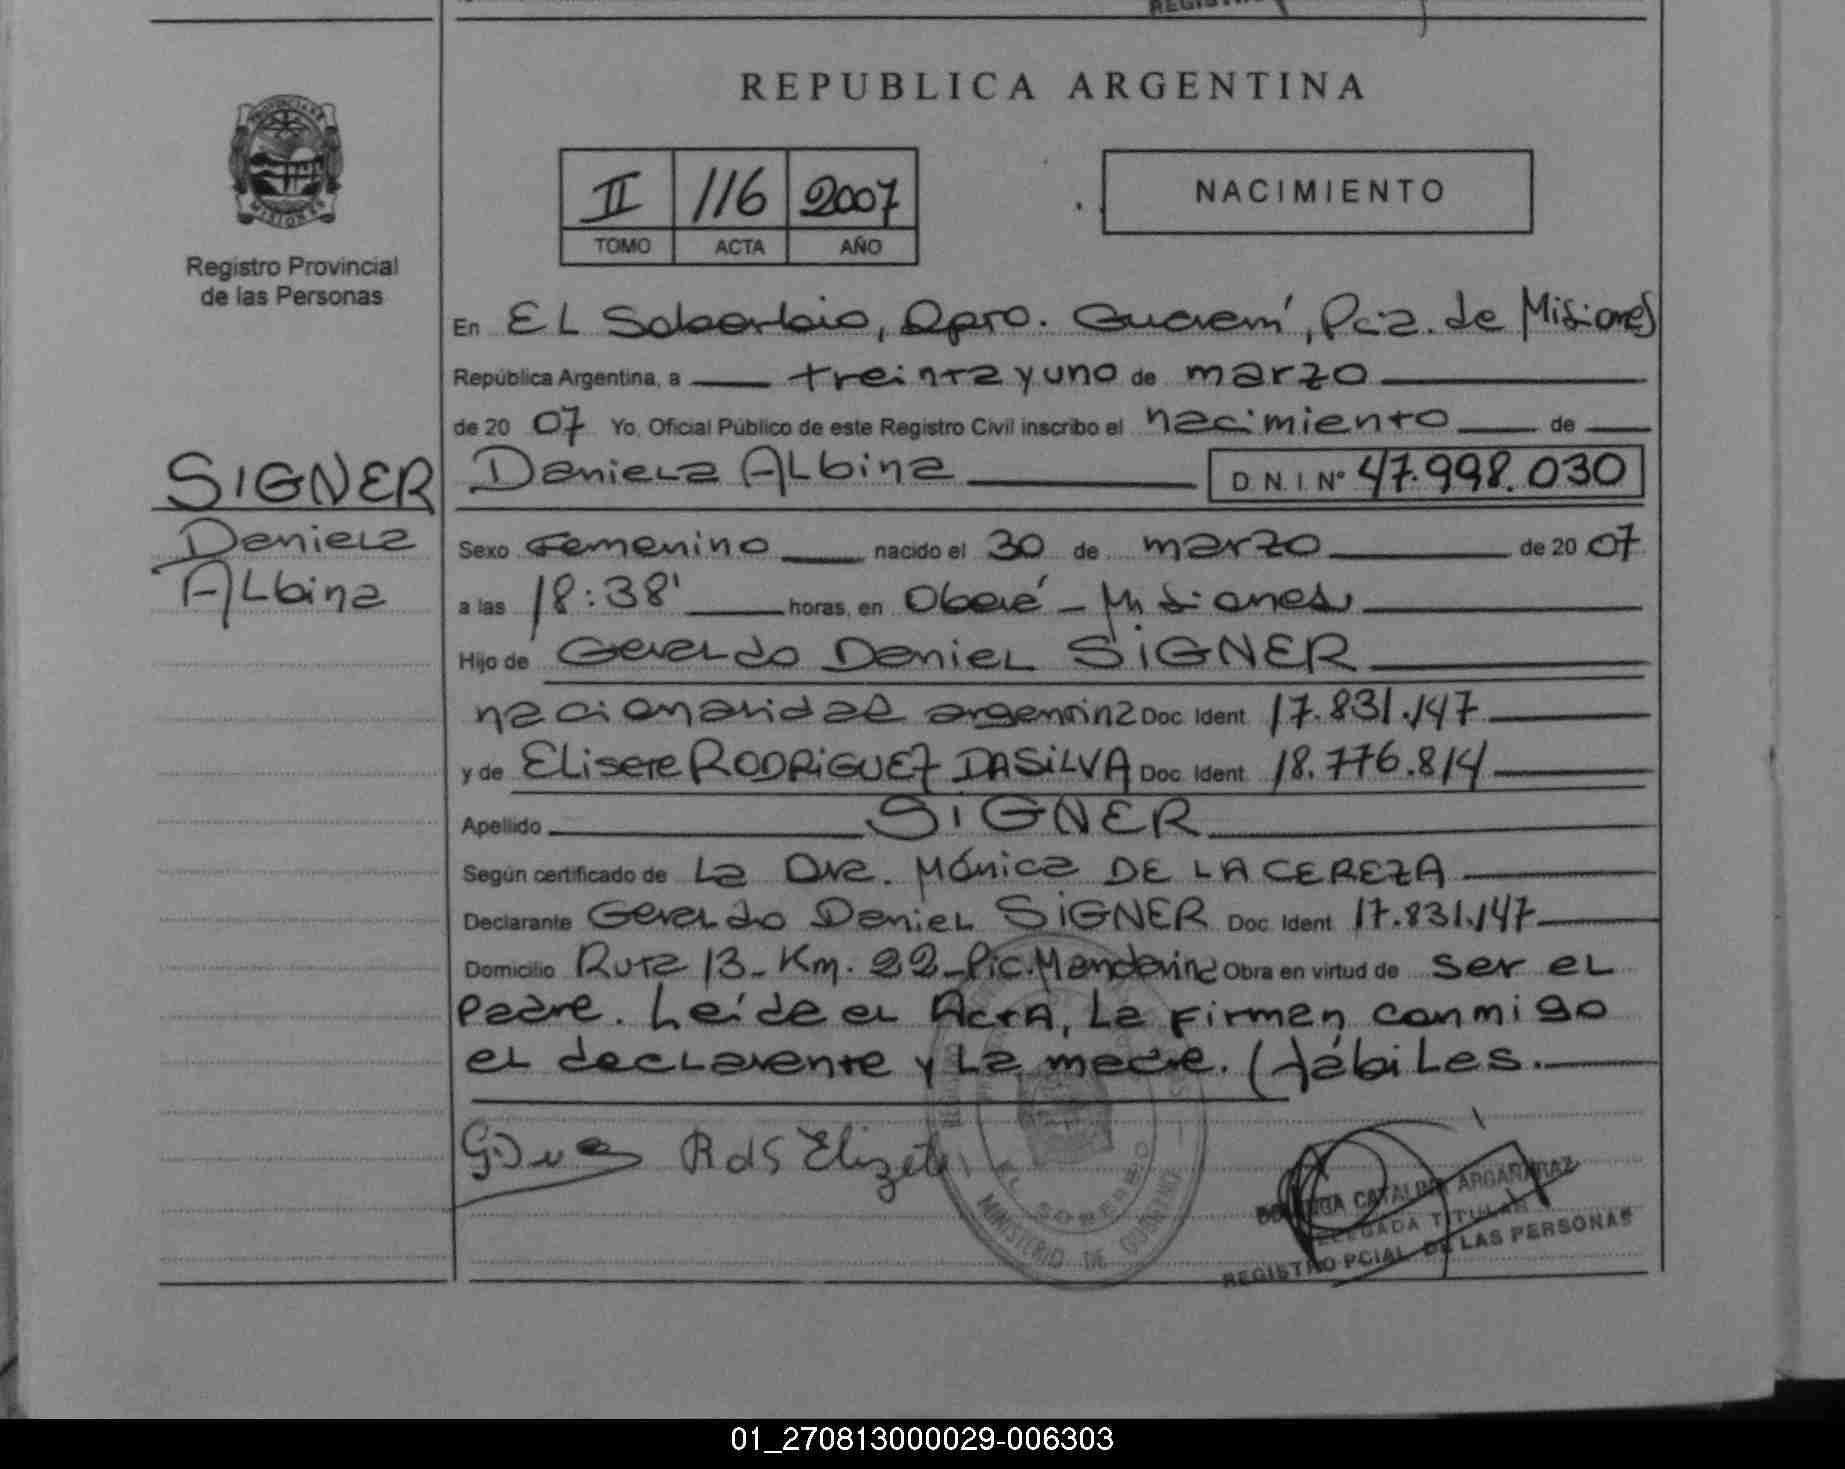 REPUBLICA ARGENTINA
II 116 2007
TOMO ACTA AÑO
NACIMIENTO
PROVINCIA DE
MISIONES
Registro Provincial
de las Personas
En EL Soberbio, Dpto. Guaraní, Pcia. de Misiones
República Argentina, a treinta y uno de marzo
de 20 07 Yo, Oficial Público de este Registro Civil inscribo el nacimiento de
SIGNER
Daniela
Albina
Daniela Albina D.N.I. Nº 47.998.030
Sexo Femenino nacido el 30 de marzo de 20 07
a las 18:38' horas, en Oberá - Misiones
Hijo de Geraldo Daniel SIGNER
nacionalidad argentina Doc. Ident. 17.831.147
y de Elisete RODRIGUEZ DASILVA Doc. Ident. 18.776.814
Apellido SIGNER
Según certificado de La Dra. Mónica DE LA CEREZA
Declarante Geraldo Daniel SIGNER Doc. Ident. 17.831.147
Domicilio Ruta 13 - Km. 22 - Pic. Mandarina Obra en virtud de ser el
padre. Leída el Acta, La Firman conmigo
el declarante y La madre. Hábiles.
RdS Elizete
EL SOBERBIO
MINISTERIO DE GOBIERNO
CATALINA ARGAÑARAZ
DELEGADA TITULAR
REGISTRO PCIAL. DE LAS PERSONAS
01_270813000029-006303